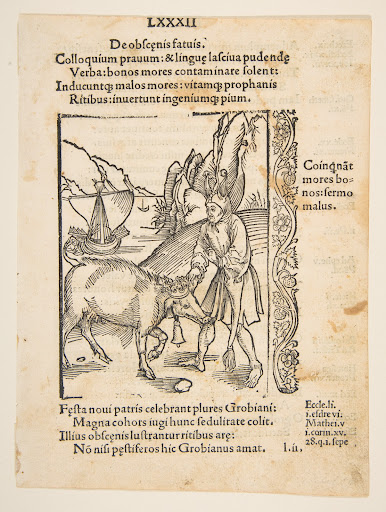 LXXXII
De obscęnis fatuis.
Colloquium prauum: & linguę lasciua pudendę
Verba: bonos mores contaminare solent:
Inducuntq; malos mores: vitamq; prophanis
Ritibus: inuertunt ingeniumq; pium.
Coinq̃nãt
mores bo-
nos: sermo
malus.
Festa noui patris celebrant plures Grobiani:
Magna cohors iugi hunc sedulitate colit.
Illius obscęnis lustrantur ritibus arę:
Nõ nisi pęstiferos hic Grobianus amat.
Eccle. li.
i. esdre vi.
Mathei. v
i. corin. xv.
28. q. i. sepe
l. ii.